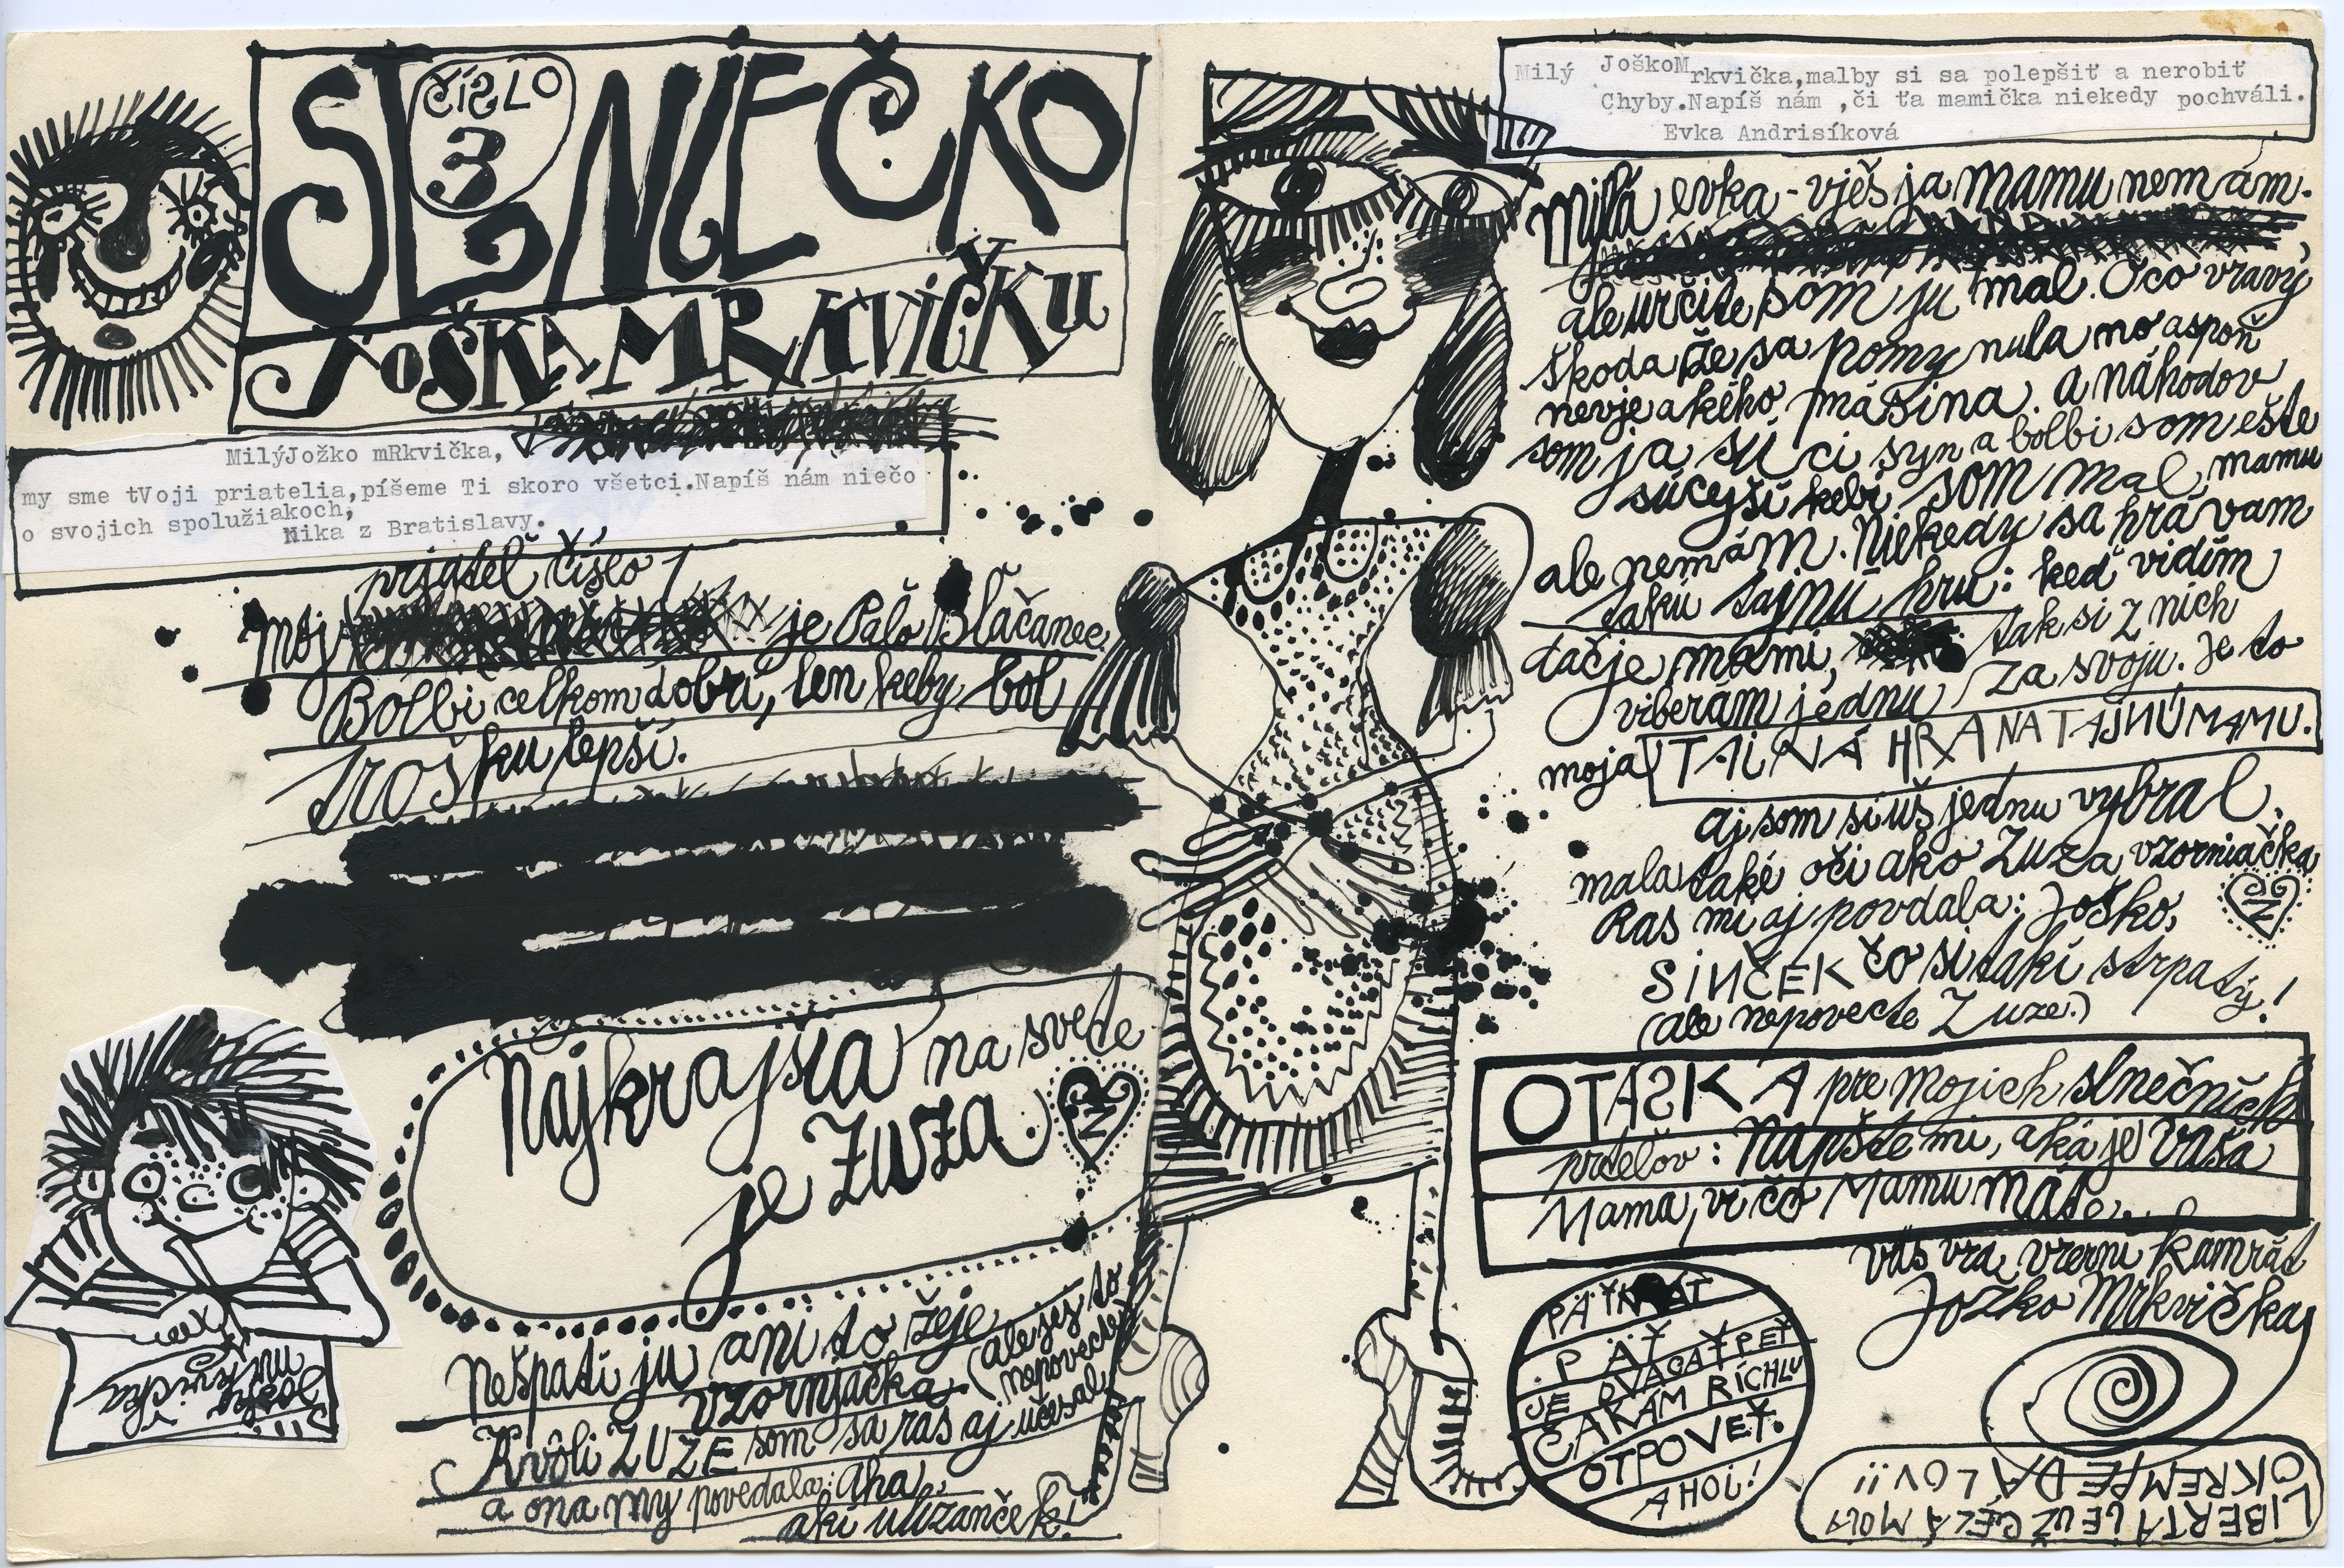 SLNIEČKO
ČÍSLO
3
JOŠKA MRKVIČKU
MilýJožko mRkvička,
my sme tVoji priatelia,píšeme Ti skoro všetci.Napíš nám niečo
o svojich spolužiakoch,
Nika z Bratislavy.
prjateľ číslo 1
Moj je Paľo Blačanec.
Bolbi celkom dobrí, len keby bol
trošku lepší.
Najkrajšia na svete
je ZUZA.
Nešpatí ju ani to žeje
vzornjačka. (ale jej to
nepovecte)
Kvôli ZUZE som sa ras aj učesal
a ona my povedala: Aha,
akí ulizanček!
Joško
Mrkvička
Milý JoškoMrkvička,malby si sa polepšiť a nerobiť
Chyby.Napíš nám ,či ťa mamička niekedy pochváli.
Evka Andrisíková
Milá evka - vješ ja mamu nemám.
ale určite som ju mal. Oco vravý
škoda že sa pomynula no aspoň
nevje akého má sina. a náhodov
som ja súci syn a bolbi som ešte
súcejší kebi som mal mamu
ale nemám. Niekedy sa hrávam
takú tajnú hru: keď vidím
dačje mami, tak si z nich
viberam jednu za svoju. Je to
moja TAJNÁ HRA NA TAJNÚ MAMU.
aj som si uš jednu vybral.
mala také oči ako Zuza vzorniačka
Ras mi aj povdala: Joško,
SINČEK čo si takí strpatý!
(ale nepovecte Zuze.)
OTÁSKA pre mojich slnečních
prteľov: Napíšte mi, aká je vaša
Mama, vi čo Mamu máte...
váš vrá vzerni kamrát
Jožko Mrkvička
PÄŤKRÁT
PÄŤ
JE DVACAŤPEŤ
ČAKÁM RÍCHLU
OTPOVEŤ.
AHOJ!